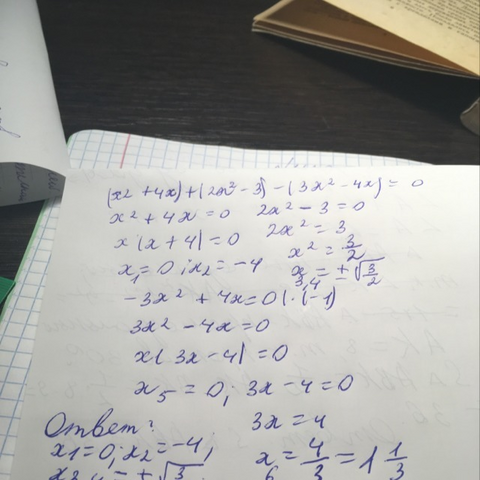 (x2 + 4x) + (2x² - 3) - (3x² - 4x) = 0
x² + 4x = 0 2x² - 3 = 0
x(x + 4) = 0 2x² = 3
x² = 3/2
x₁ = 0; x₂ = -4 x₃,₄ = ±√3/2
-3x² + 4x = 0 | · (-1)
3x² - 4x = 0
x(3x - 4) = 0
x₅ = 0; 3x - 4 = 0
Ответ: 3x = 4
x1 = 0; x2 = -4; x₆ = 4/3 = 1 1/3
x3,4 = ±√3